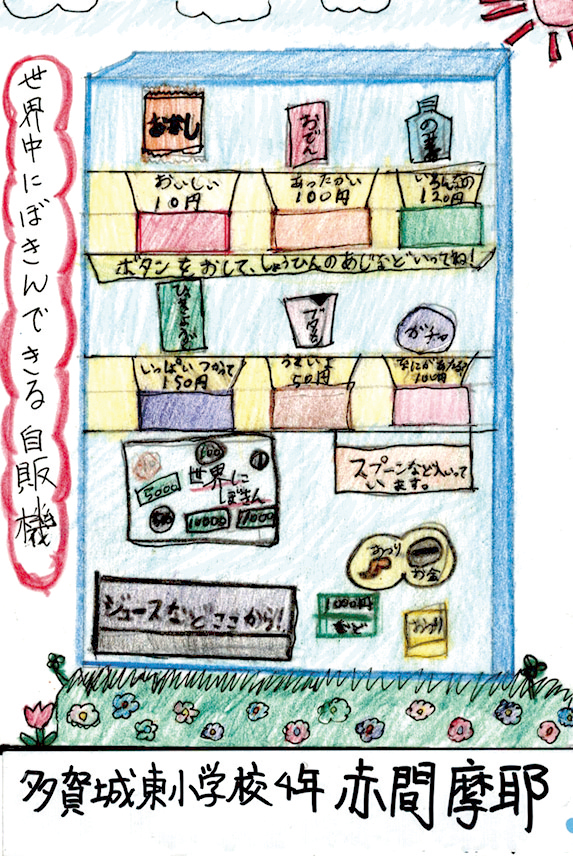 世界中にぼきんできる自販機
おかし
おでん
おいしい
10円
あったかい
100円
120円
ボタンをおして、しょうひんのあじなどいってね!
ガチャ
いっぱいつかって
150円
うまいよ
50円
100円
100
5000
世界に
ぼきん
10000
1000
スプーンなど入いって
います。
おつり
お金
ジュースなどここから!
1000円
など
おつり
多賀城東小学校4年 赤間摩耶